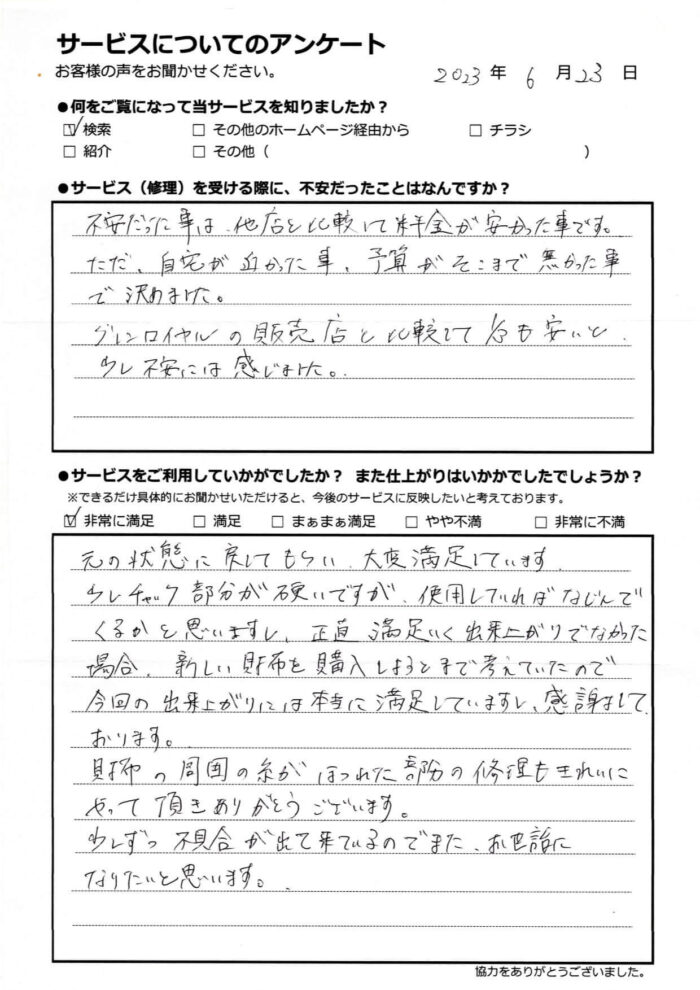 サービスについてのアンケート
お客様の声をお聞かせください。
2023 年 6 月 23 日
●何をご覧になって当サービスを知りましたか?
☑ 検索 □ その他のホームページ経由から □ チラシ
□ 紹介 □ その他( )
●サービス(修理)を受ける際に、不安だったことはなんですか?
不安だった事は、他店と比較して料金が安かった事です。
ただ、自宅が近かった事、予算がそこまで無かった事
で決めました。
グレンロイヤルの販売店と比較して も安いと、
少し不安には感じました。
●サービスをご利用していかがでしたか? また仕上がりはいかかでしたでしょうか?
※できるだけ具体的にお聞かせいただけると、今後のサービスに反映したいと考えております。
☑ 非常に満足 □ 満足 □ まぁまぁ満足 □ やや不満 □ 非常に不満
元の状態に戻してもらい、大変満足しています。
少しチャック部分が硬いですが、使用していればなじんで
くるかと思いますし、正直 満足いく出来上がりでなかった
場合、新しい財布を購入しようとまで考えていたので
今回の出来上がりには本当に満足していますし、感謝もして
おります。
財布の周囲の糸がほつれた部分の修理もきれいに
やって頂きありがとうございます。
少しずつ不具合が出て来ているのでまた、お世話に
なりたいと思います。
協力をありがとうございました。